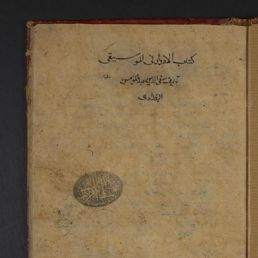 كتاب الادوار فى الموسيقى
تاليف صفى الدين عبد المومن
البغدادى